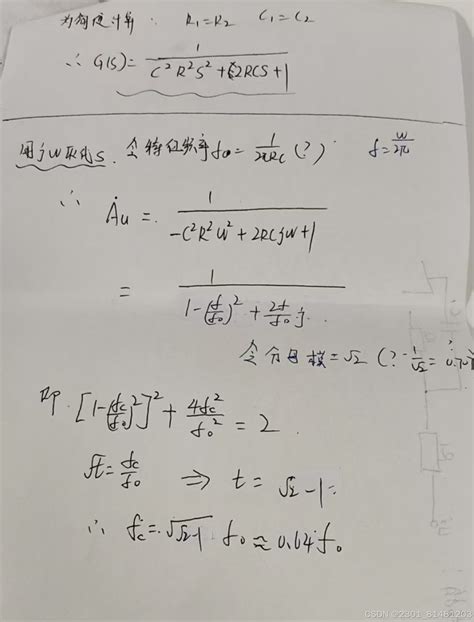 为简便计算： R₁=R₂ C₁=C₂
∴ G(s)= 1 / (C²R²S²+2RCS+1)
用jw取代s. 令特征频率f₀= 1/(2πRC) (?) f= w/2π
∴ Ȧu = 1 / (-C²R²w²+2RCjw+1)
= 1 / (1-(f/f₀)²+(2f/f₀)j)
令分母模=√2 (? 1/√2 =
即. [1-(fc/f₀)²]²+4fc²/f₀²=2
√t= fc/f₀ ⇒ t=√2-1
∴ fc=√(√2-1) f₀≈0.64f₀
CSDN @2301_81486203